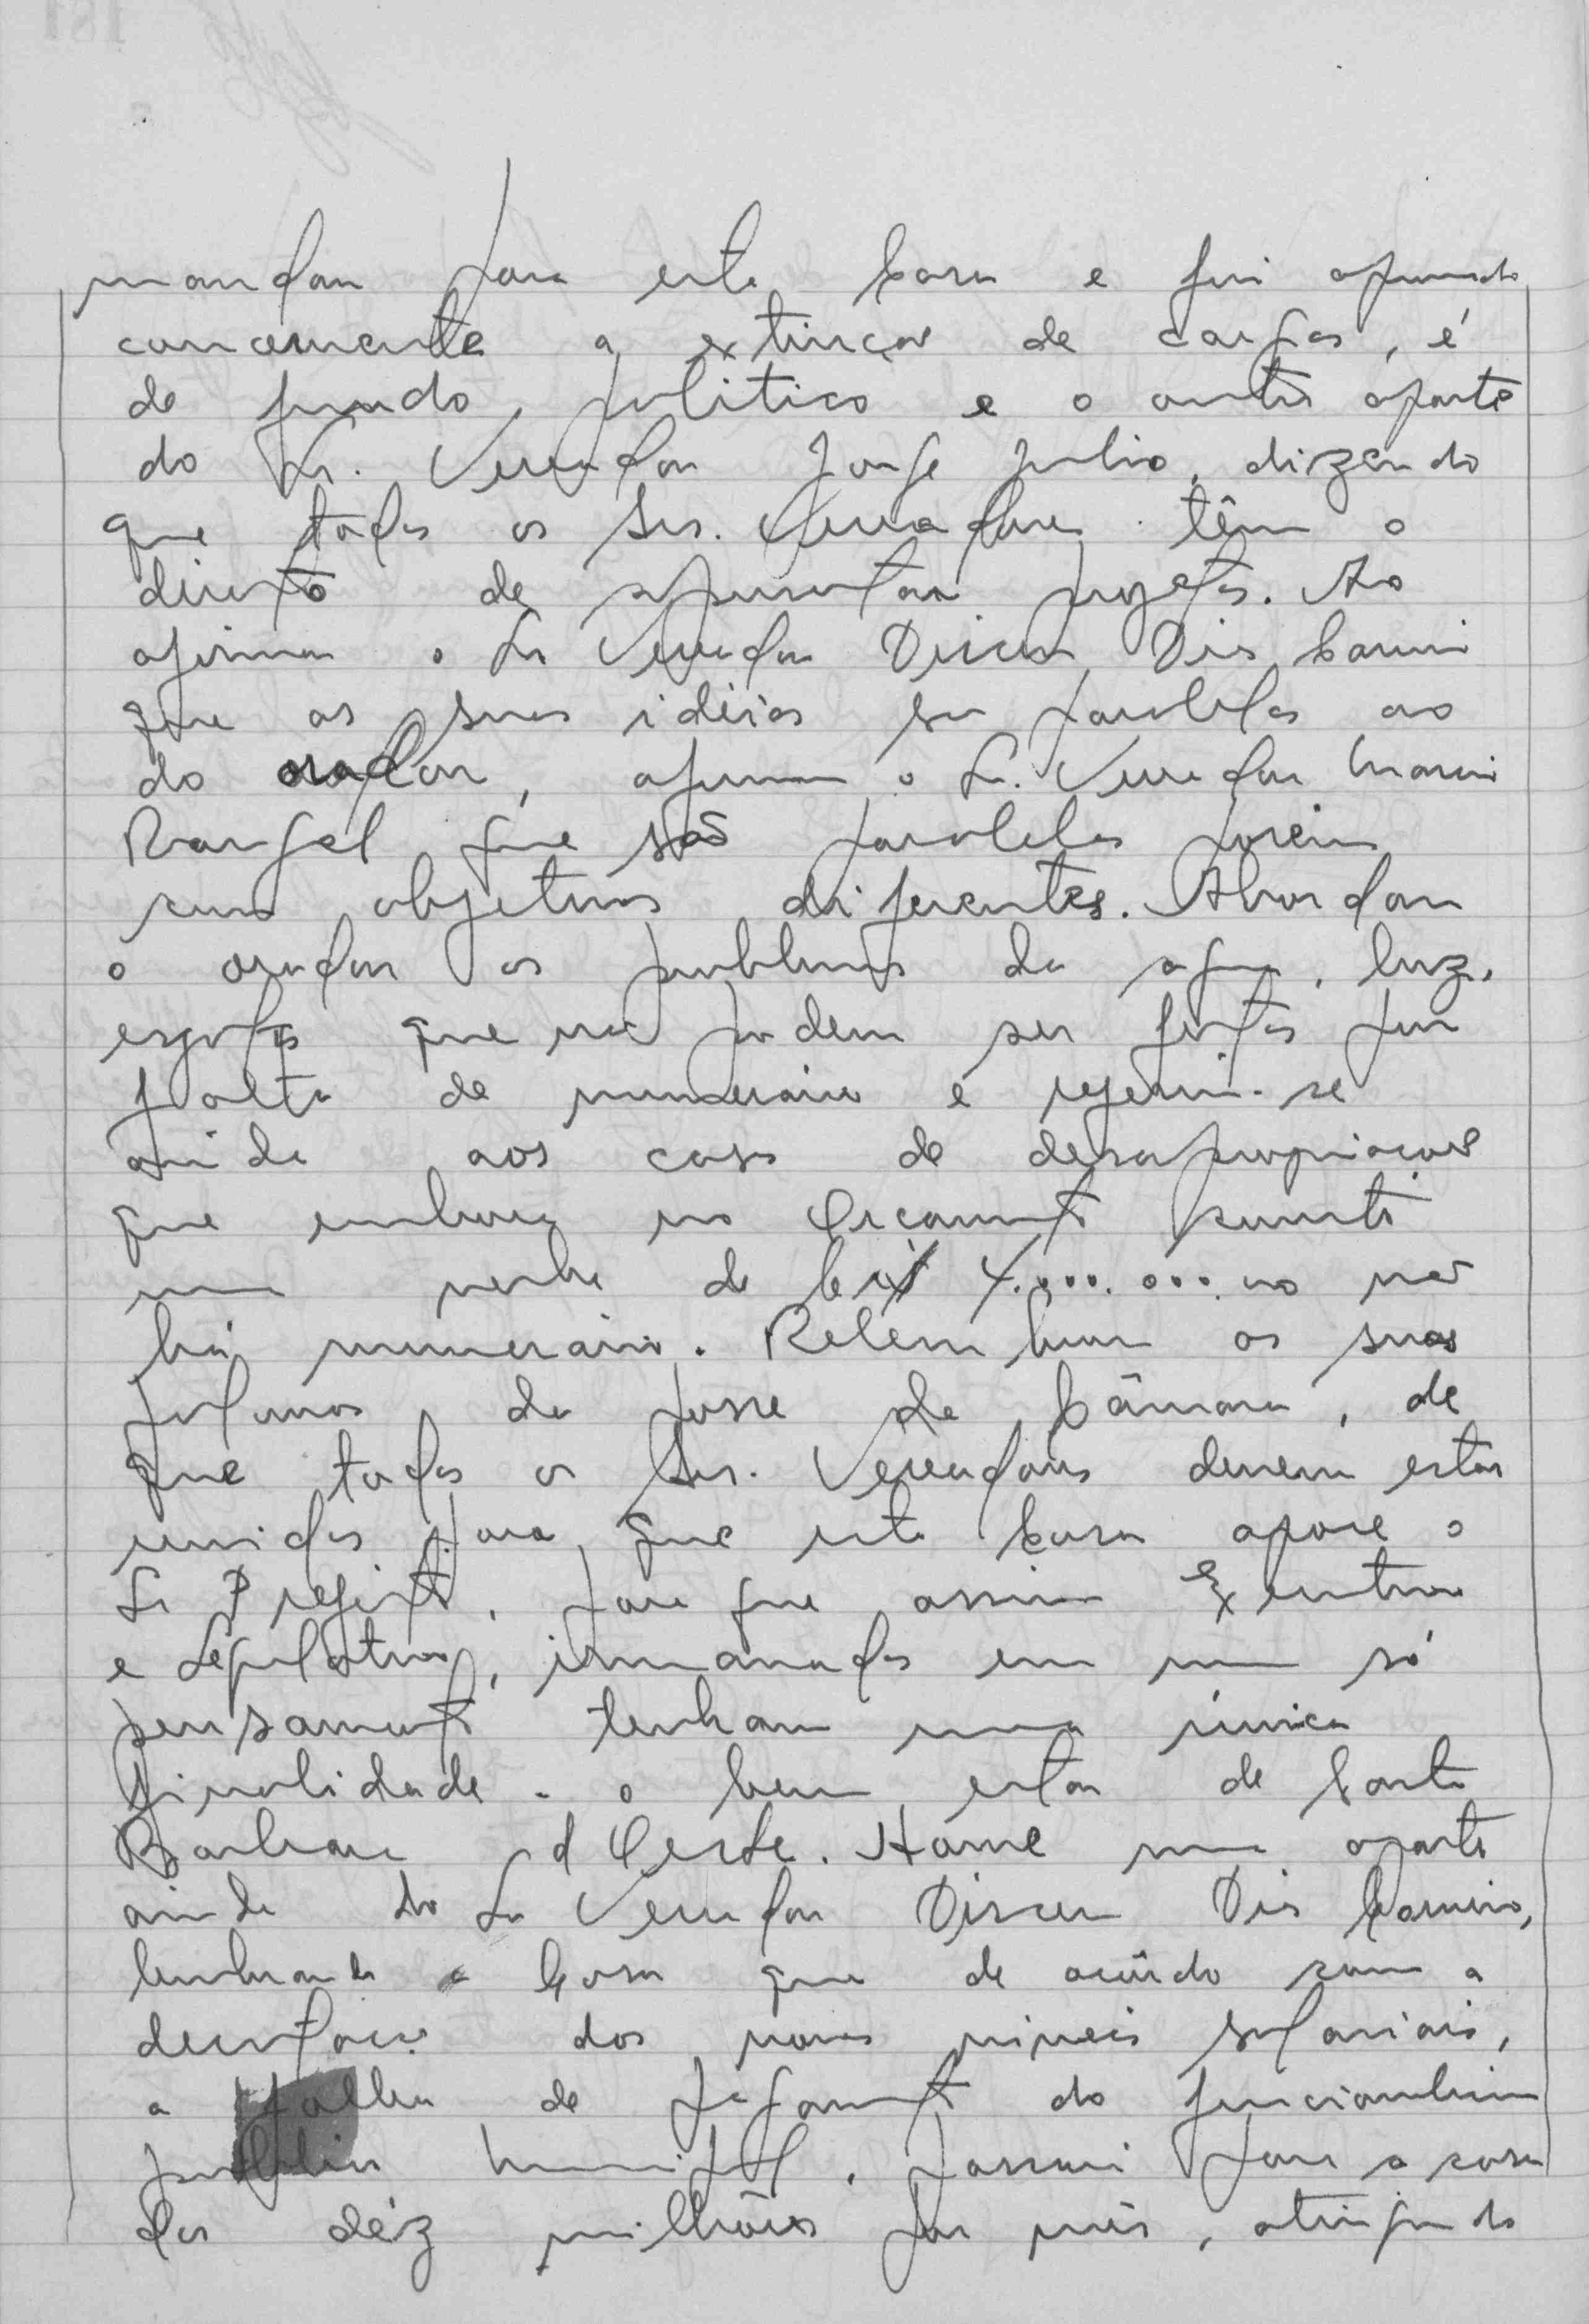 mandou para esta Casa e foi apresentado
a extinção de cargos, é
de fundo politico e o outro aparte
do Sr. Vereador Jorge Julio, dizendo
que todos os Srs. Vereadores têm o
direito de apresentar projetos. Ao
afirmar o Sr Vereador Dirceu Dias Carneiro
que as suas idéias são paralelas ao
do orador, afirma o Sr. Vereador
Rangel que são paralelas porém
com objetivos diferentes. Abordou
o orador os problemas da agua, luz,
esgotos que não podem ser feitos por
falta de numerario e referiu-se
ainda aos casos de desapropriação
que embora no Orçamento
uma verba de Cr$ 4.000.000.00 não
há numerário. Relembrou as suas
palavras da posse da Câmara, de
que todos os Srs. Vereadores devem estar
unidos para que esta Casa apoie o
Sr Prefeito, para que assim Executivo
e Legislativo, irmanados em um só
pensamento tenham uma única
finalidade - o bem estar de Santa
Barbara d'Oeste. Houve um aparte
ainda do Sr Vereador Dirceu Dias Carneiro,
lembrando a Casa que de acôrdo com a
decretação dos novos niveis salariais,
a folha de pagamento do funcionalismo
publico municipal, passará para a casa
dos déz milhões por mês, atingindo